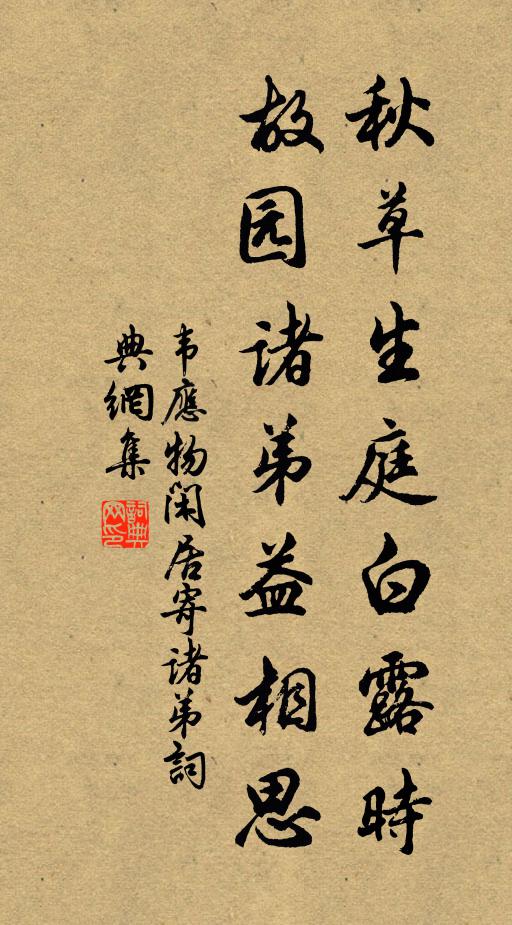 秋草生庭白露時
故园诸弟益相思
韦應物闲居寄诸弟詞
典網集
詞典網印